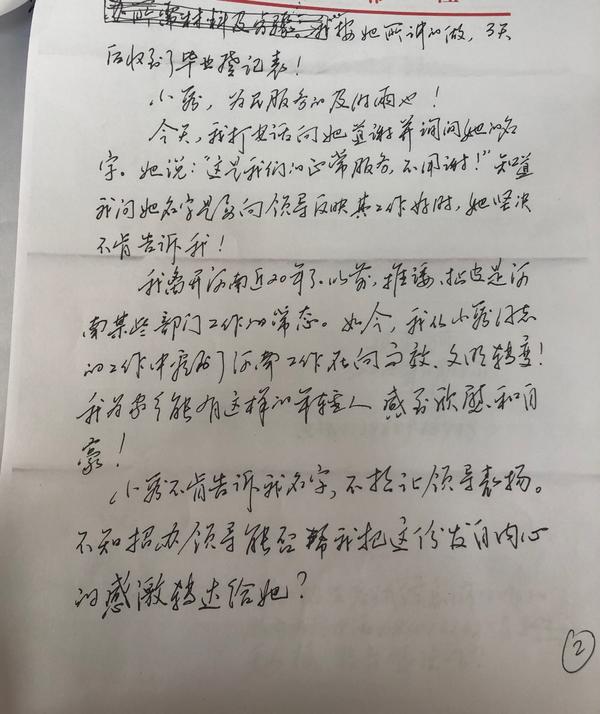 我按她所讲的做，3天
后收到了毕业登记表！
小骆，为民服务的及时雨也！
今天，我打电话向她道谢并询问她的名
字。她说：“这是我们的正常服务，不用谢！”知道
我问她名字是为向领导反映其工作好时，她坚决
不肯告诉我！
我离开河南近20年了。以前，推诿、扯皮是河
南某些部门工作的常态。如今，我从小骆同志
的工作中看到了河南工作在向高效、文明转变！
我为家乡能有这样的年轻人感到欣慰和自
豪！
小骆不肯告诉我名字，不想让领导表扬。
不知招办领导能否帮我把这份发自内心
的感激转达给她？
2